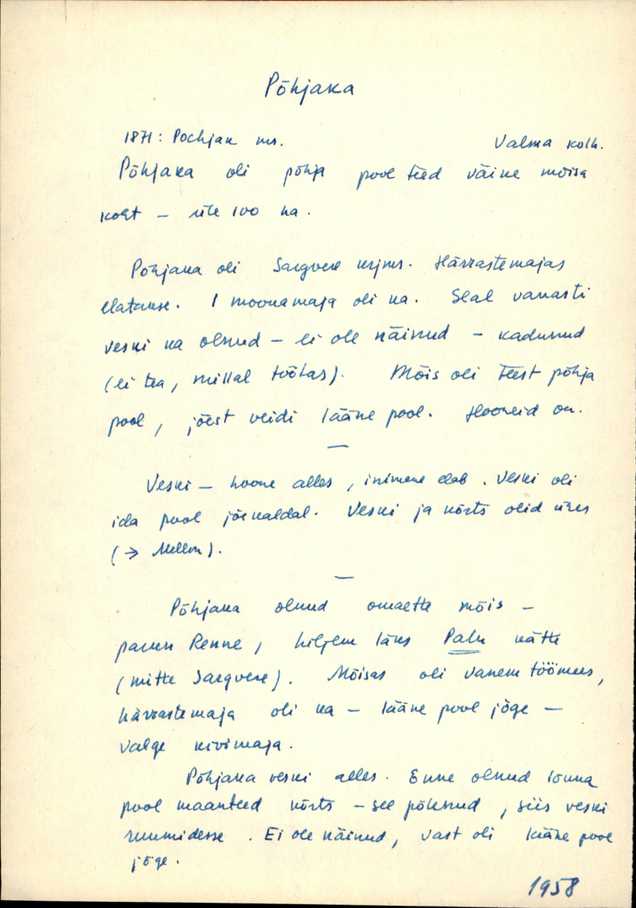 Põhjaka
1871: Pochjak ms. Valma kolh.
Põhjaka oli põhja pool teed väike mõisa
koht – üle 100 ha.
Põhjaka oli Saegvere krjms. Härrastemajas
elatakse. 1 moonamaja oli ka. Seal vanasti
veski ka olnud – ei ole näinud – kadunud
(ei tea, millal töötas). Mõis oli teest põhja
pool, jõest veidi lääne pool. Hooneid on.
—
Veski – hoone alles, inimene elab. Veski oli
ida pool jõekaldal. Veski ja kõrts olid üks
(→ ).
—
Põhjaka olnud omaette mõis –
parun Renne, hiljem läks Palu kätte
(mitte Saegvere). Mõisas oli vanem töömees,
härrastemaja oli ka – lääne pool jõge –
valge kivimaja.
Põhjaka veski alles. Enne olnud lõuna
pool maanteed kõrts – see põlenud, siis veski
ruumidesse. Ei ole näinud, vast oli lääne pool
jõge.
1958